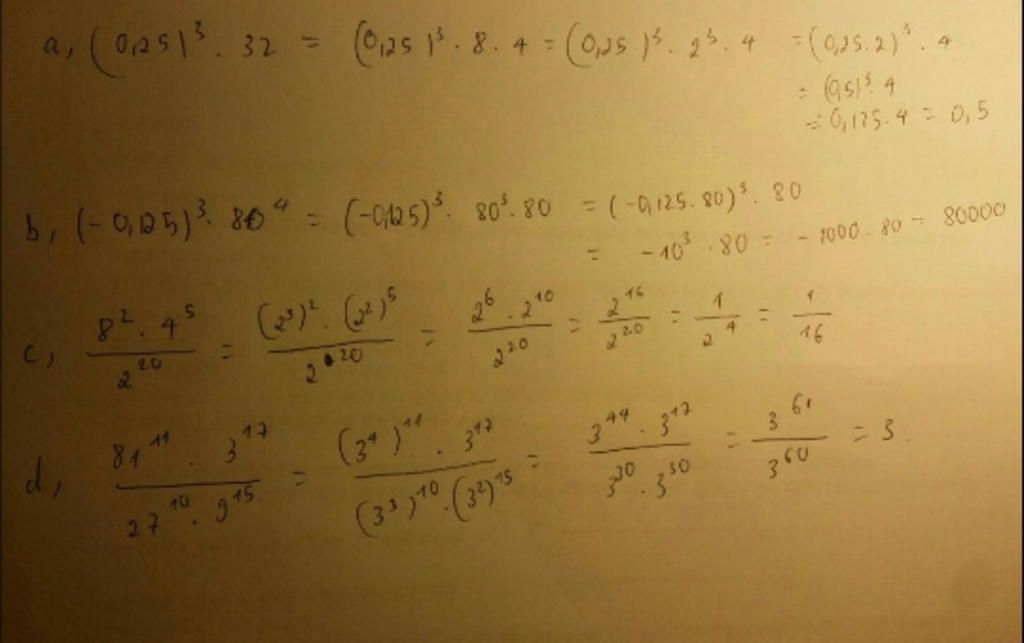 a, (0,25)³ . 32 = (0,25)³ . 8 . 4 = (0,25)³ . 2³ . 4 = (0,25.2)³ . 4
= (0,5)³. 4
= 0,125.4 = 0,5
b, (-0,125)³. 80⁴ = (-0,125)³. 80³.80 = (-0,125.80)³. 80
= -10³ .80 = -1000.80 = 80000
c, (8² . 4⁵)/2²⁰ = ((2³)² . (2²)⁵)/2²⁰ = (2⁶ . 2¹⁰)/2²⁰ = 2¹⁶/2²⁰ = 1/2⁴ = 1/16
d, (81¹¹ . 3¹⁷)/(27¹⁰ . 9¹⁵) = ((3⁴)¹¹ . 3¹⁷)/((3³)¹⁰.(3²)¹⁵) = (3⁴⁴ . 3¹⁷)/(3³⁰ . 3³⁰) = 3⁶¹/3⁶⁰ = 3.